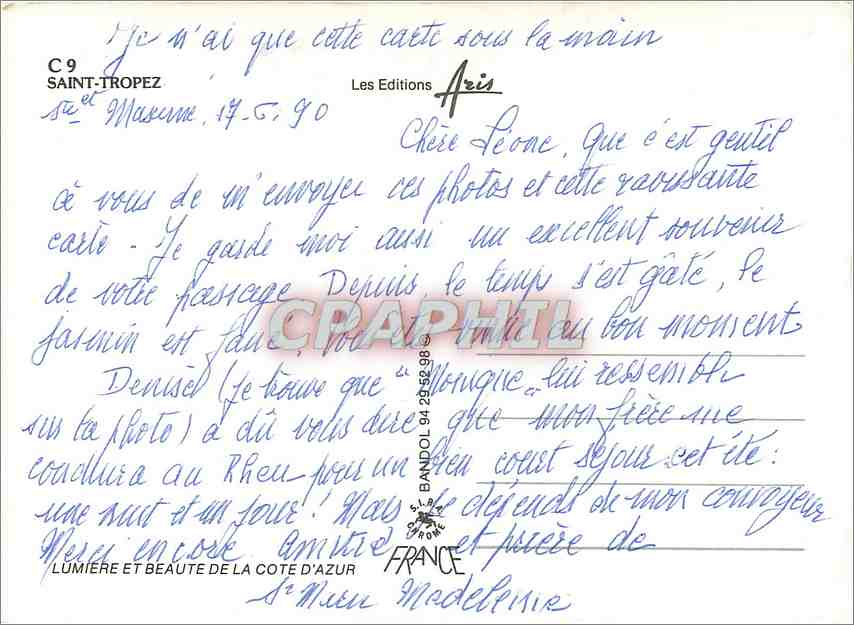 Je n'ai que cette carte sous la main
C 9
SAINT-TROPEZ
Les Editions Aris
Ste Maxime, 17.6.90
Chère Léone, que c'est gentil
à vous de m'envoyer ces photos et cette ravissante
carte - Je garde moi aussi un excellent souvenir
de votre passage. Depuis, le temps s'est gâté, le
jasmin est fané, au bon moment
CPARPHIL
Denise (je trouve que "Monique" lui ressemble
sur la photo) a dû vous dire que mon frère me
conduira au Rheu pour un bien court séjour cet été :
une nuit et un jour! Mais je dépends de mon convoyeur
Merci encore. Amitié et prière de
BANDOL 94 29 52 98
S.I.R.A. CHROME
FRANCE
LUMIERE ET BEAUTE DE LA COTE D'AZUR
Sr Madeleine